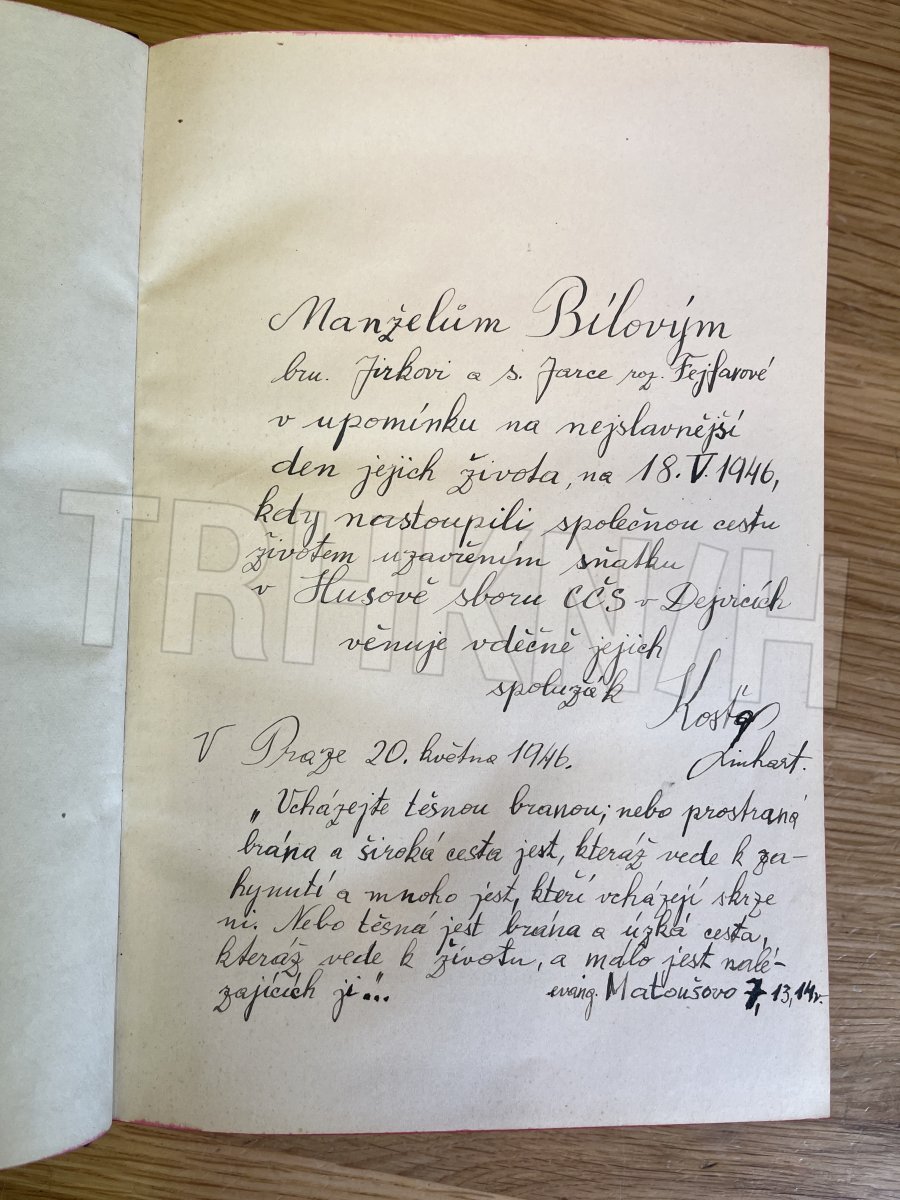 Manželům Bílovým
bru. Jirkovi a s. Jarce roz. Fejfarové
v upomínku na nejslavnější
den jejich života, na 18. V. 1946,
kdy nastoupili společnou cestu
životem uzavřením sňatku
v Husově sboru CČS v Dejvicích
věnuje vděčně jejich
spolužák Kosťa
Linhart.
V Praze 20. května 1946.
„Vcházejte těsnou branou; nebo prostraná
brána a široká cesta jest, kteráž vede k za-
hynutí a mnoho jest, kteří vcházejí skrze
ni. Nebo těsná jest brána a úzká cesta,
kteráž vede k životu, a málo jest nalé-
zajících ji“...
evang. Matoušovo 7, 13, 14v.
TRHKNIH